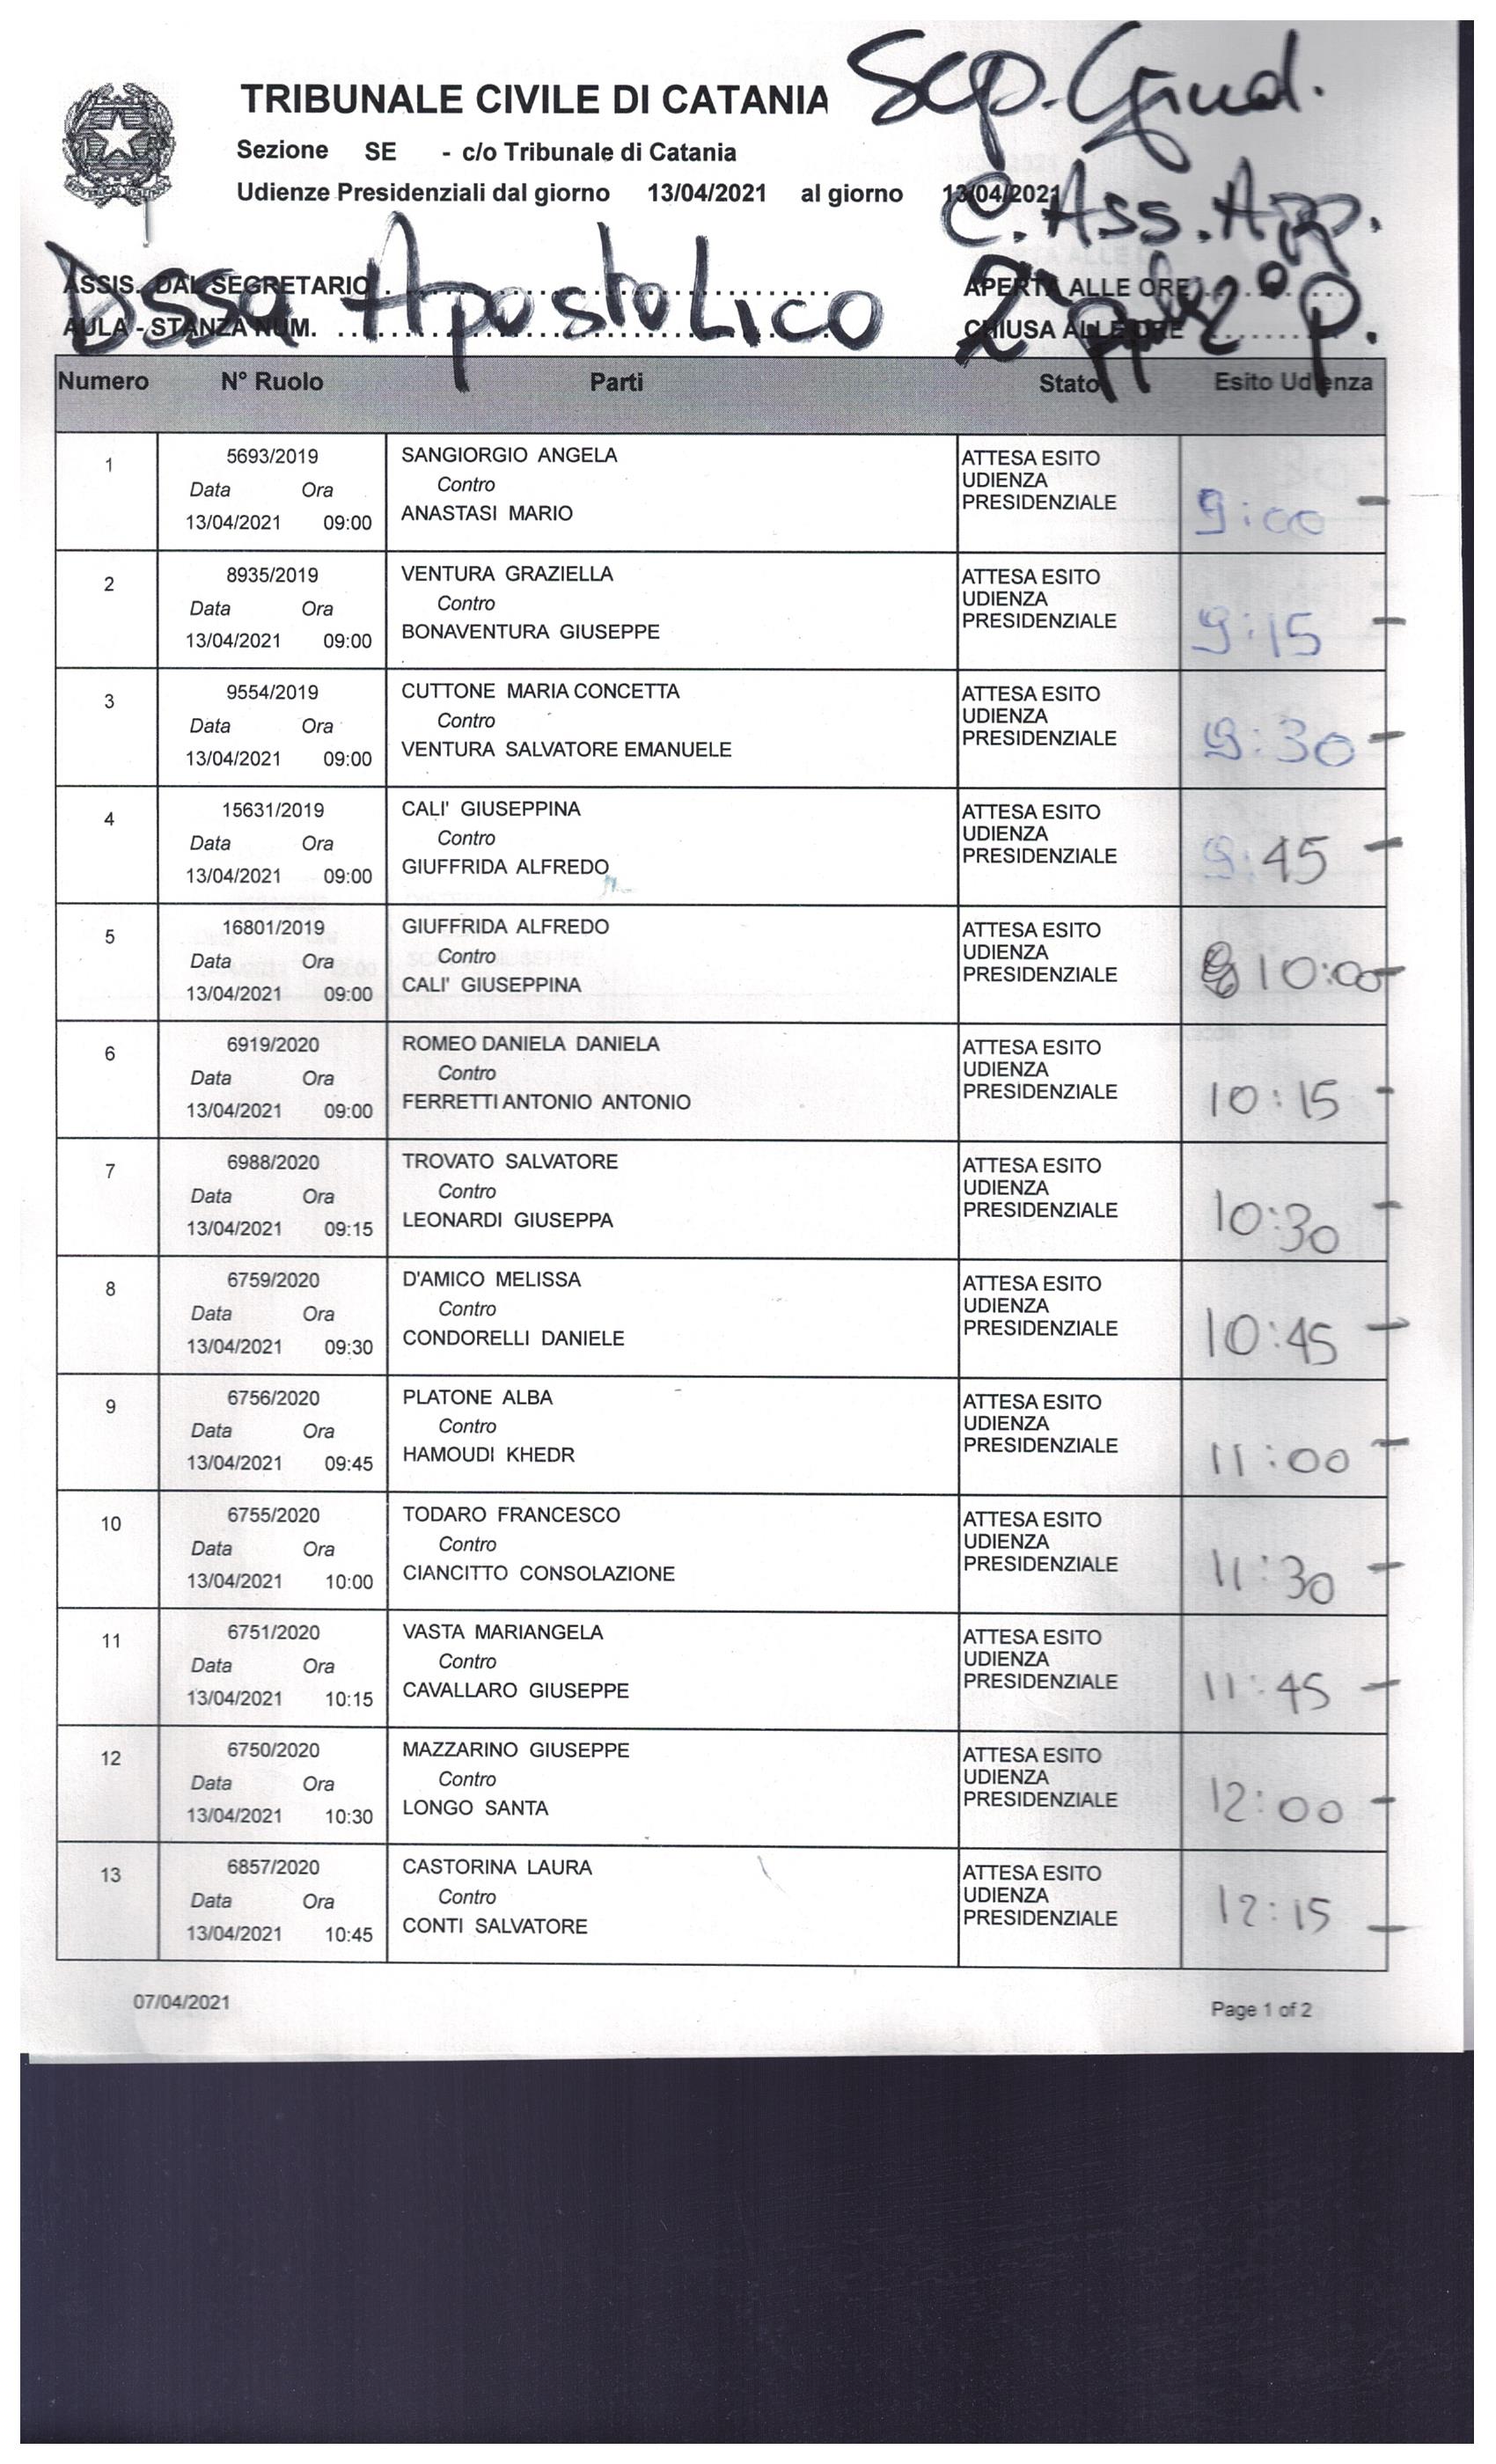 Sep. Giud.
TRIBUNALE CIVILE DI CATANIA
Sezione SE - c/o Tribunale di Catania
Udienze Presidenziali dal giorno 13/04/2021 al giorno 13/04/2021
C. Ass. App.
Dssa Apostolico
2° P.
ASSIS. DAL SEGRETARIO
APERTA ALLE ORE
AULA - STANZA NUM.
CHIUSA ALLE ORE
Numero N° Ruolo Parti Stato Esito Udienza
1 5693/2019 SANGIORGIO ANGELA ATTESA ESITO
Data Ora Contro UDIENZA
13/04/2021 09:00 ANASTASI MARIO PRESIDENZIALE 9:00 -
2 8935/2019 VENTURA GRAZIELLA ATTESA ESITO
Data Ora Contro UDIENZA
13/04/2021 09:00 BONAVENTURA GIUSEPPE PRESIDENZIALE 9:15 -
3 9554/2019 CUTTONE MARIA CONCETTA ATTESA ESITO
Data Ora Contro UDIENZA
13/04/2021 09:00 VENTURA SALVATORE EMANUELE PRESIDENZIALE 9:30 -
4 15631/2019 CALI' GIUSEPPINA ATTESA ESITO
Data Ora Contro UDIENZA
13/04/2021 09:00 GIUFFRIDA ALFREDO PRESIDENZIALE 9:45 -
5 16801/2019 GIUFFRIDA ALFREDO ATTESA ESITO
Data Ora Contro UDIENZA
13/04/2021 09:00 CALI' GIUSEPPINA PRESIDENZIALE 10:00 -
6 6919/2020 ROMEO DANIELA DANIELA ATTESA ESITO
Data Ora Contro UDIENZA
13/04/2021 09:00 FERRETTI ANTONIO ANTONIO PRESIDENZIALE 10:15 -
7 6988/2020 TROVATO SALVATORE ATTESA ESITO
Data Ora Contro UDIENZA
13/04/2021 09:15 LEONARDI GIUSEPPA PRESIDENZIALE 10:30 -
8 6759/2020 D'AMICO MELISSA ATTESA ESITO
Data Ora Contro UDIENZA
13/04/2021 09:30 CONDORELLI DANIELE PRESIDENZIALE 10:45 -
9 6756/2020 PLATONE ALBA ATTESA ESITO
Data Ora Contro UDIENZA
13/04/2021 09:45 HAMOUDI KHEDR PRESIDENZIALE 11:00 -
10 6755/2020 TODARO FRANCESCO ATTESA ESITO
Data Ora Contro UDIENZA
13/04/2021 10:00 CIANCITTO CONSOLAZIONE PRESIDENZIALE 11:30 -
11 6751/2020 VASTA MARIANGELA ATTESA ESITO
Data Ora Contro UDIENZA
13/04/2021 10:15 CAVALLARO GIUSEPPE PRESIDENZIALE 11:45 -
12 6750/2020 MAZZARINO GIUSEPPE ATTESA ESITO
Data Ora Contro UDIENZA
13/04/2021 10:30 LONGO SANTA PRESIDENZIALE 12:00 -
13 6857/2020 CASTORINA LAURA ATTESA ESITO
Data Ora Contro UDIENZA
13/04/2021 10:45 CONTI SALVATORE PRESIDENZIALE 12:15 -
07/04/2021 Page 1 of 2